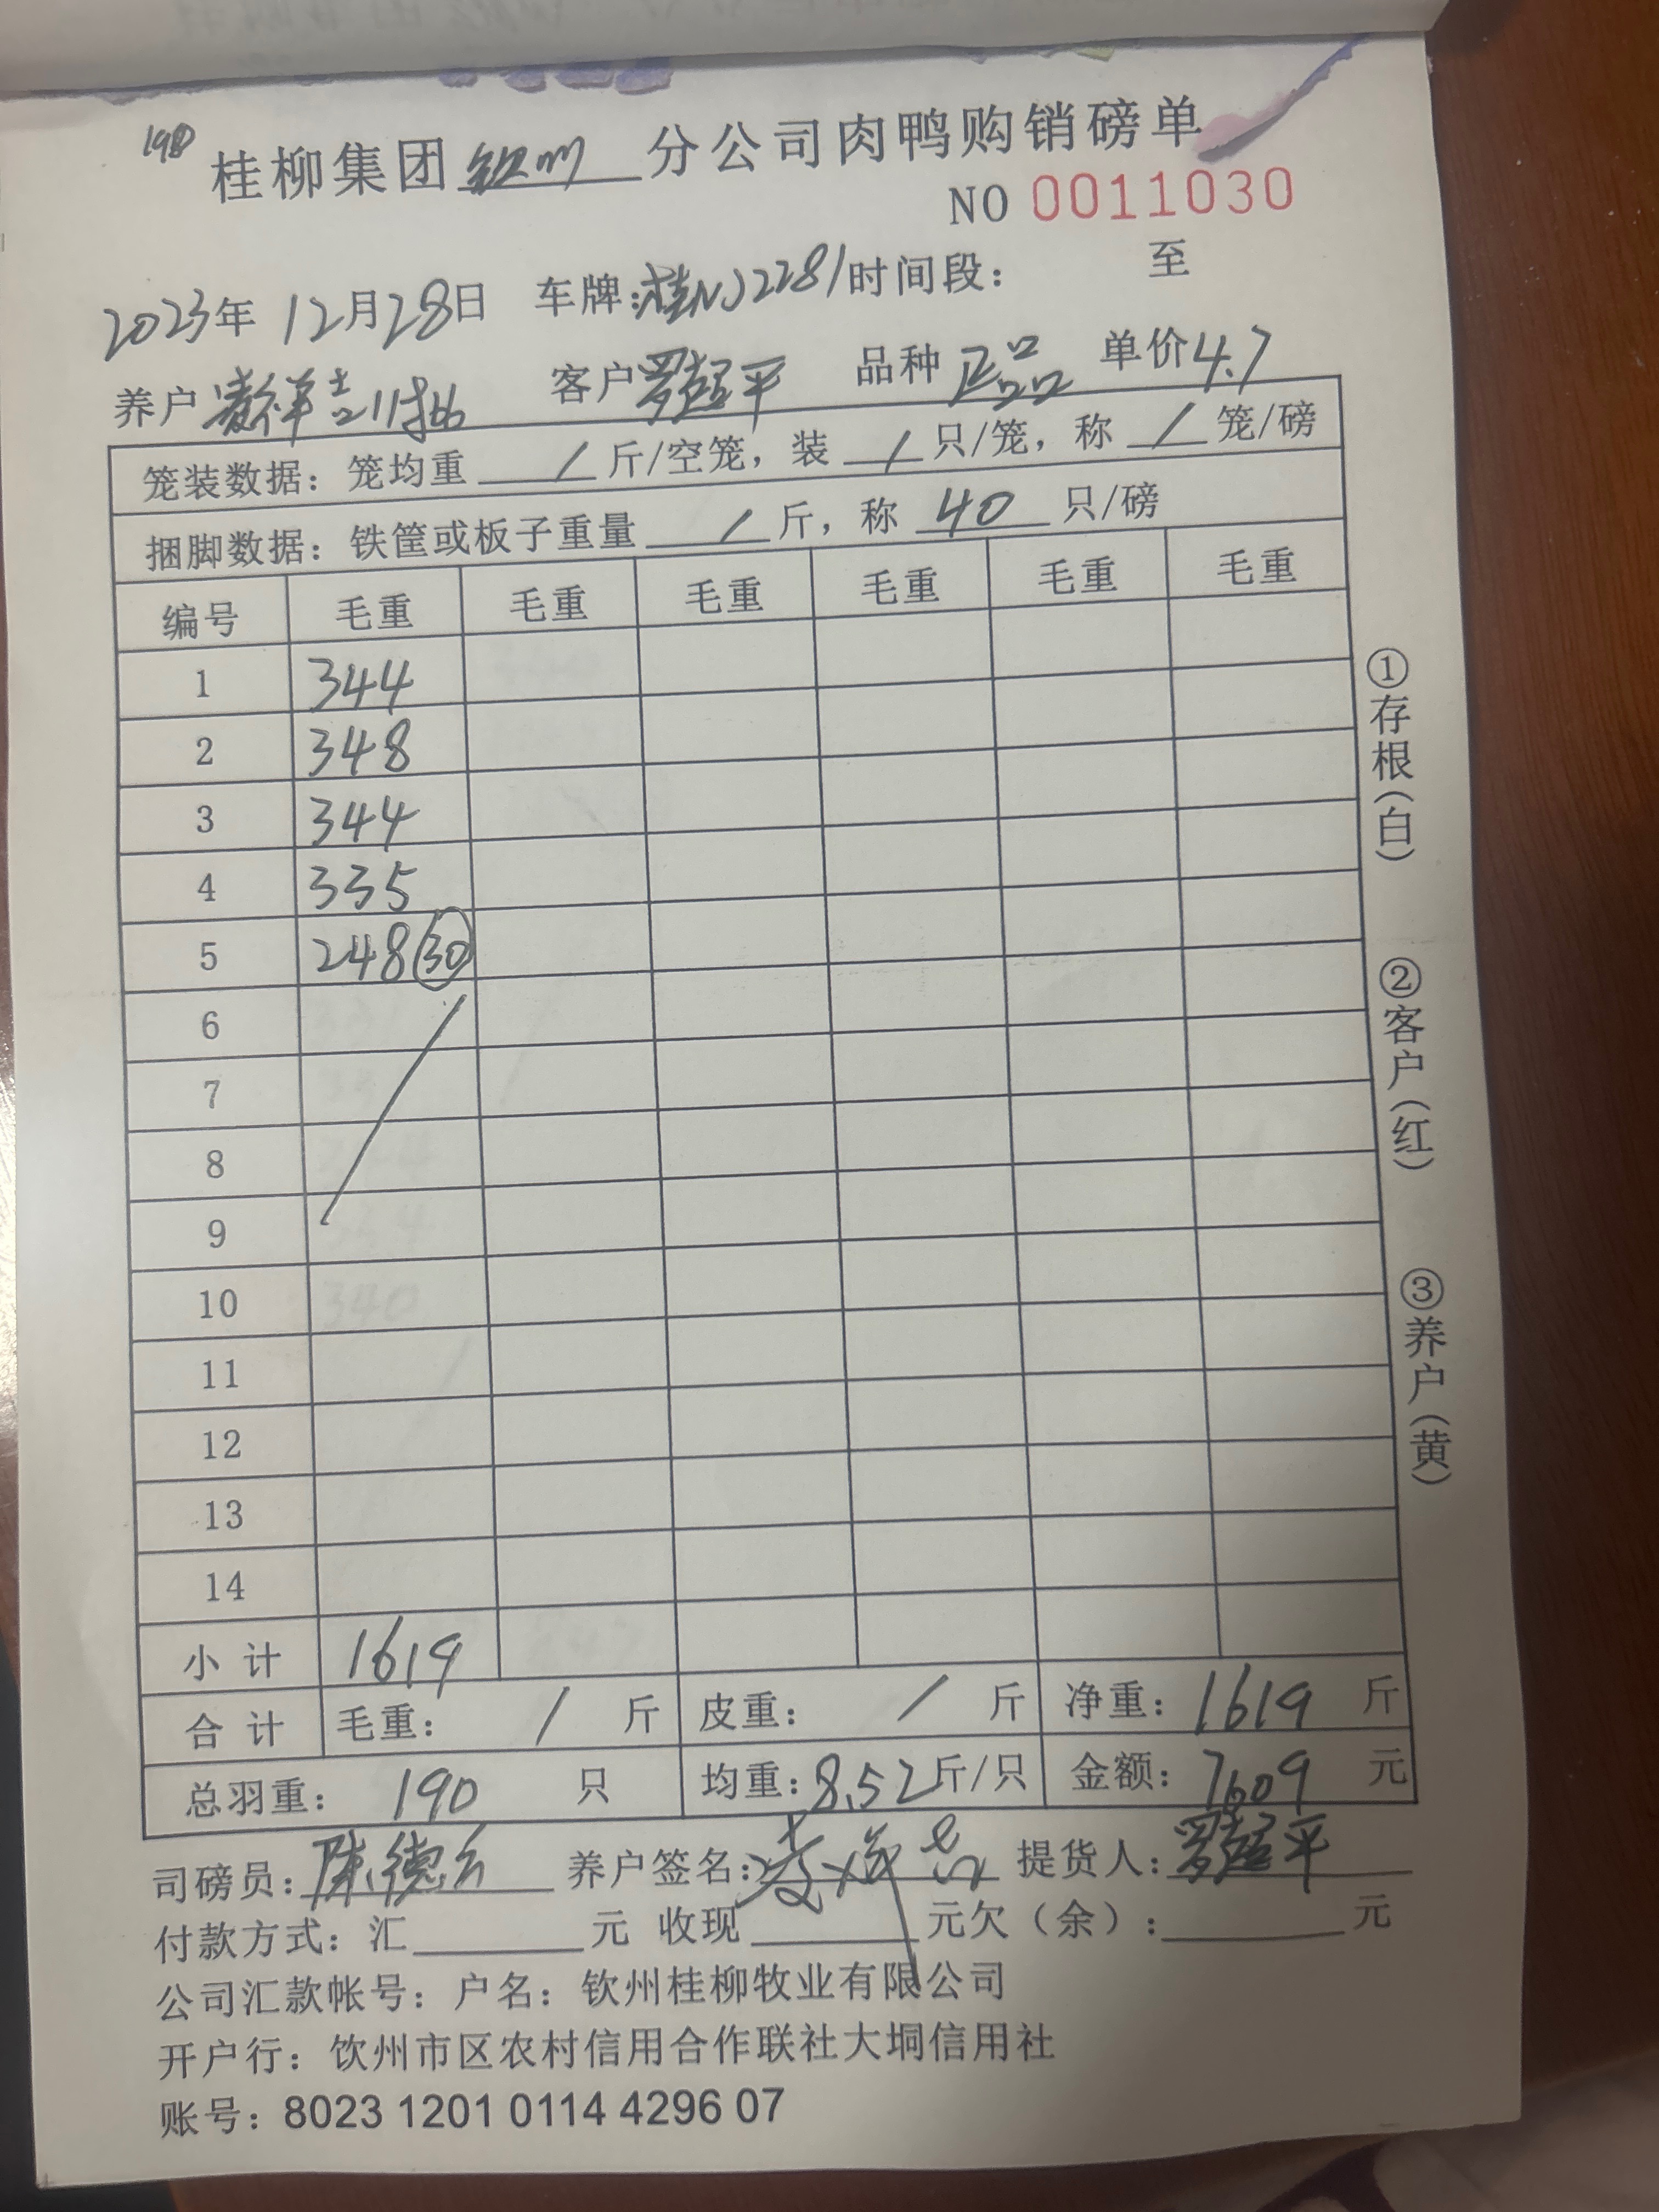 190
桂柳集团钦州分公司肉鸭购销磅单
NO 0011030
2023年 12月28日 车牌:桂NJ2281 时间段: 至
养户 祥吉11批 客户 罗超平 品种 正品 单价 4.7
笼装数据: 笼均重 / 斤/空笼, 装 / 只/笼, 称 / 笼/磅
捆脚数据: 铁筐或板子重量 / 斤, 称 40 只/磅
编号 毛重 毛重 毛重 毛重 毛重 毛重
1 344
2 348
3 344
4 335
5 248 30
6
7
8
9
10
11
12
13
14
小计 1619
合计 毛重: / 斤 皮重: / 斤 净重: 1619 斤
总羽重: 190 只 均重: 8.52 斤/只 金额: 7609 元
司磅员: 陈德 养户签名: 祥吉 提货人: 罗超平
付款方式: 汇 元 收现 元欠(余): 元
公司汇款帐号: 户名: 钦州桂柳牧业有限公司
开户行: 钦州市区农村信用合作联社大垌信用社
账号: 8023 1201 0114 4296 07
①存根(白)
②客户(红)
③养户(黄)